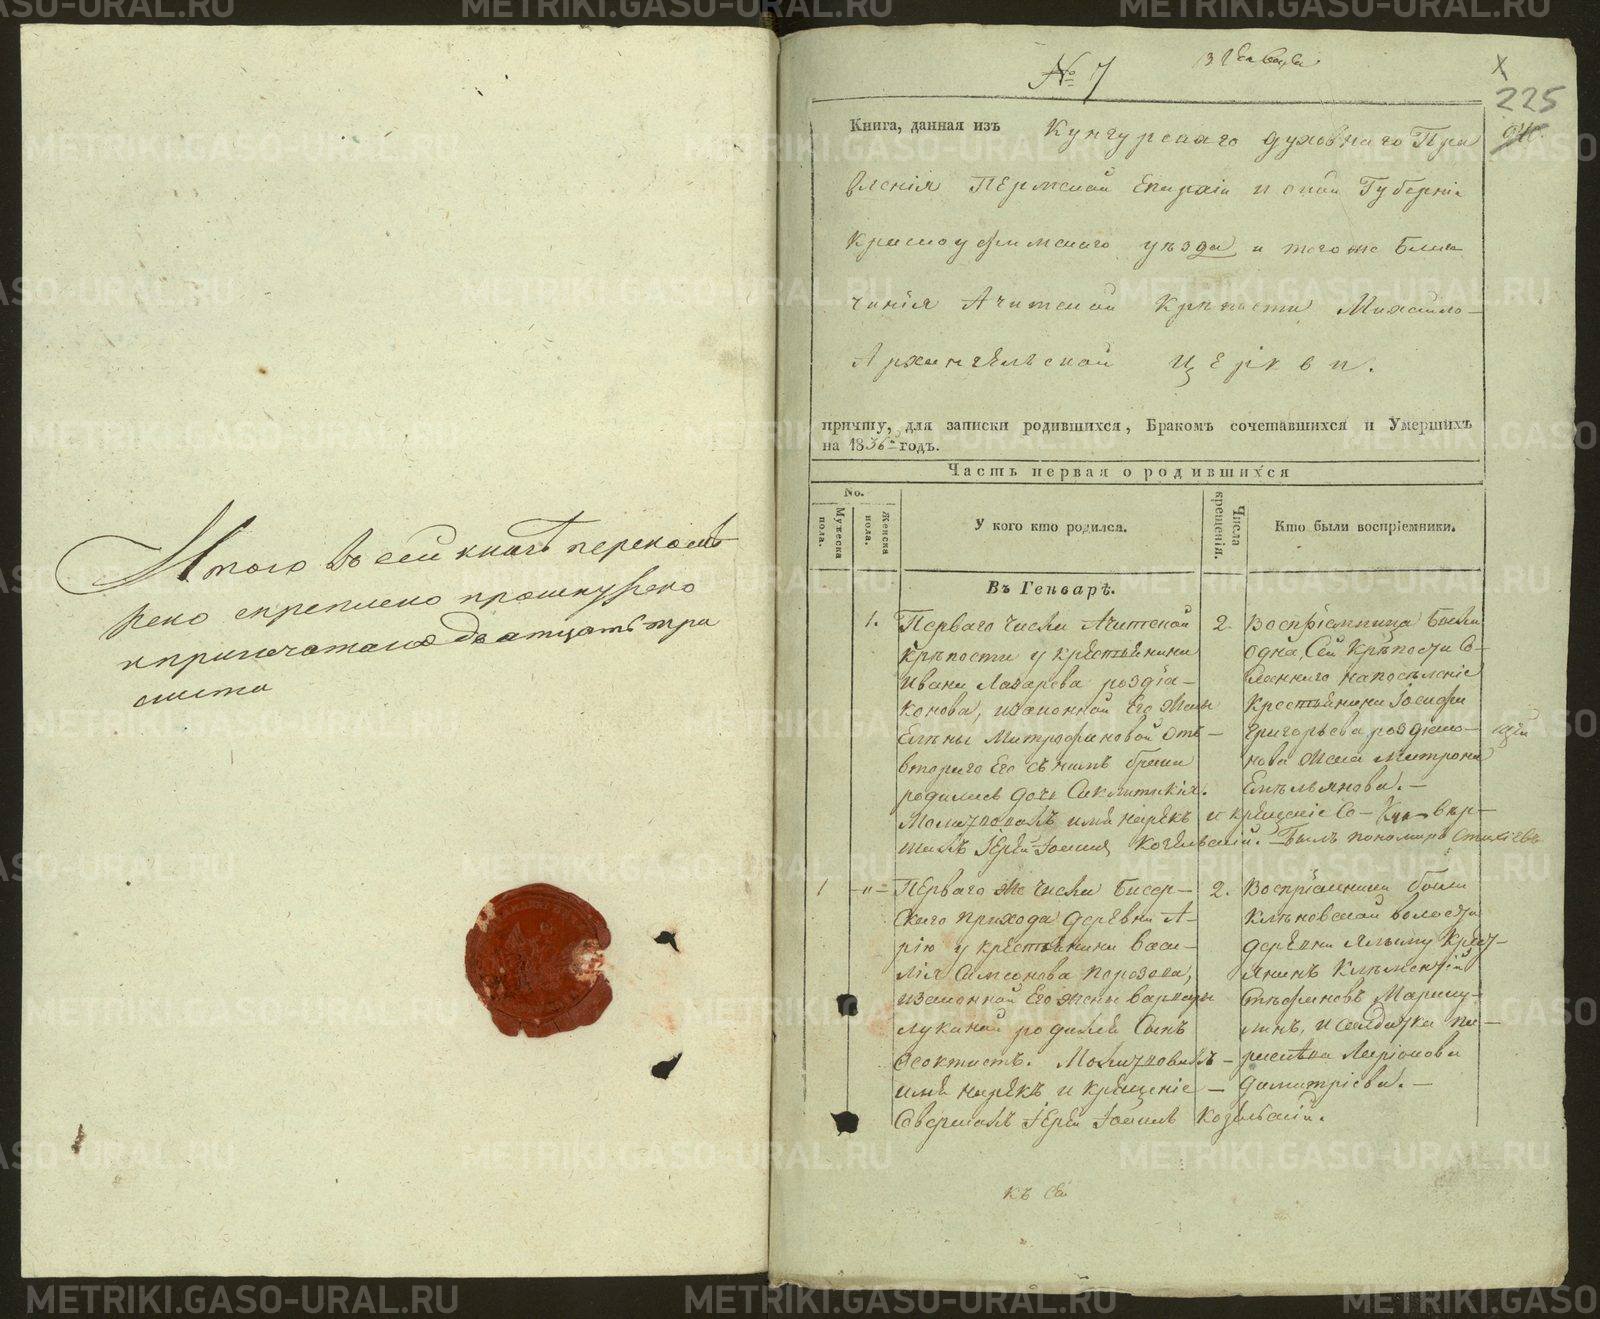 Итого въ сей книгѣ перенумѣ
рено скреплено прошнуровано
и припечатано дватцать три
листа
№ 7
225
Книга, данная изъ Кунгурскаго духовнаго Пра
вленія Пермской Епархіи и оной Губерніи
Красноуфимскаго уѣзда и тогоже Благо
чинія Ачитской Крѣпости Михаило-
Архангельской церкви.
причту, для записки родившихся, Бракомъ сочетавшихся и Умершихъ
на 1836 годъ.
Часть первая о родившихся
No.
Мужеска пола.
Женска пола.
У кого кто родился.
Числа крещенія.
Кто были воспріемники.
Въ Генварѣ.
1. Перваго числа Ачитской
крѣпости у крестьянина
Ивана Лазарева роздіа-
конова, изаконной Его жены
Елены Митрофановой отъ-
втораго Его съ нимъ брака
родилась дочь
Молитвовалъ имя нарекъ и крещеніе Со-
шалъ Іерей Іоаннъ
2 Воспріемница была
одна, Сей Крѣпости Со-
сланнаго на поселеніе
Крестьянина Іосифа
Григорьева роздіако-
нова жена Матрона
Емельянова.-
вер-
Былъ пономарь
1 -"- Перваго же числа Бисер-
скаго прихода деревни А-
рію у крестьянина Васи-
лія Симеонова
изаконной Его жены Варвары
Лукиной родился Сынъ
Ѳеоктистъ. Молитвовалъ-
имя нарекъ и крещеніе-
Совершалъ Іерей Іоаннъ
2. Воспріемники были
Кленовской волости
деревни Крест-
янинъ Климентій
Стефановъ
и солдатка Па-
раскева Ларіонова
Димитріева.-